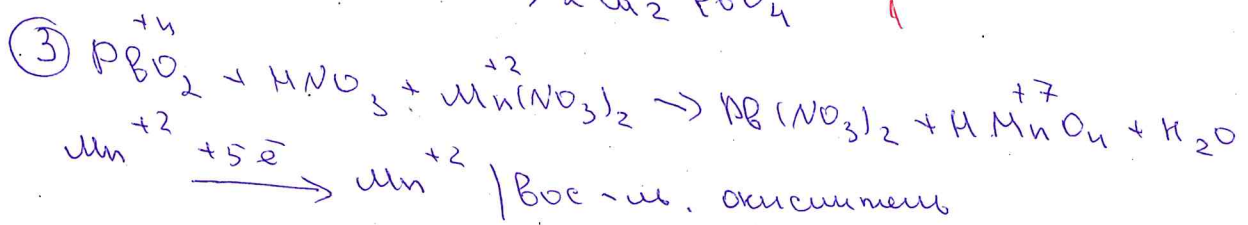 ③ PbO₂ + HNO₃ + Mn(NO₃)₂ → Pb(NO₃)₂ + HMnO₄ + H₂O
+4 +2 +7
Mn⁺² +5ē → Mn⁺² | вос-ль. окислитель